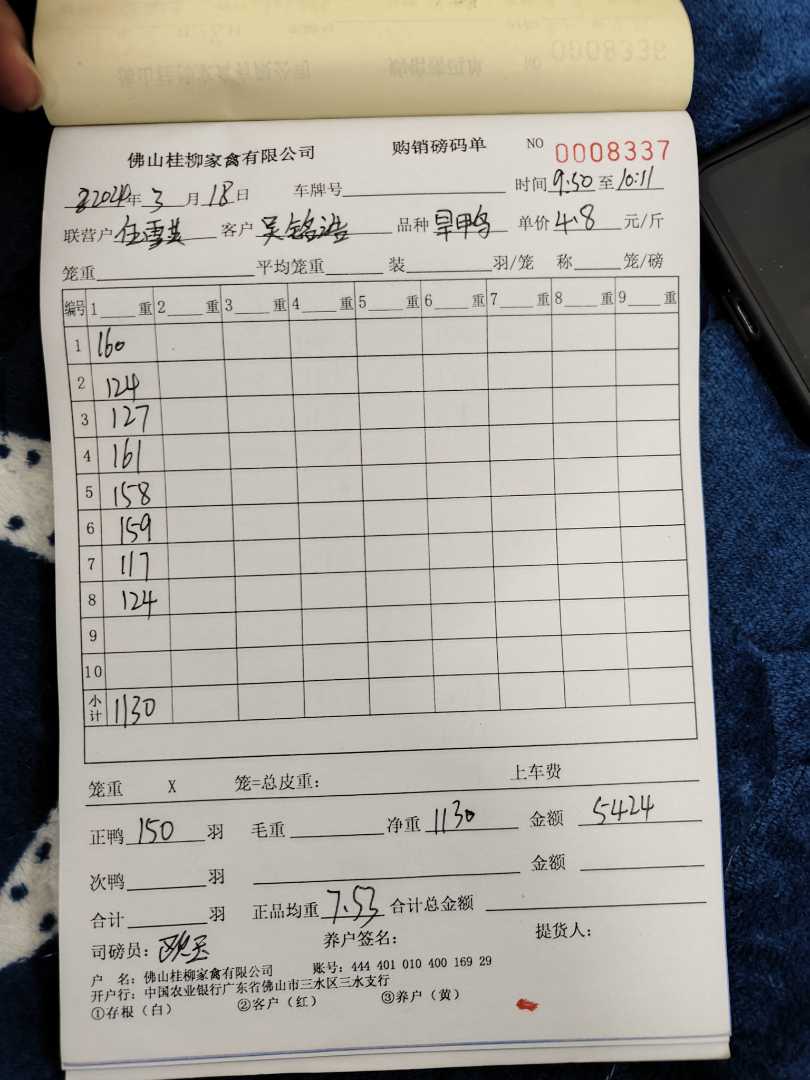 佛山桂柳家禽有限公司 购销磅码单 NO 0008337
2024年3月18日 车牌号 时间9:50至10:11
联营户 任雪芸 客户 吴铭浩 品种 旱鸭 单价4.8元/斤
笼重 平均笼重 装 羽/笼 称 笼/磅
编号 1 重 2 重 3 重 4 重 5 重 6 重 7 重 8 重 9 重
1 160
2 124
3 127
4 161
5 158
6 159
7 117
8 124
9
10
小计 1130
笼重 X 笼=总皮重: 上车费
正鸭 150 羽 毛重 净重 1130 金额 5424
次鸭 羽 金额
合计 羽 正品均重 7.53 合计总金额
司磅员: 养户签名: 提货人:
户 名: 佛山桂柳家禽有限公司 账号: 444 401 010 400 169 29
开户行: 中国农业银行广东省佛山市三水区三水支行
①存根(白) ②客户(红) ③养户(黄)